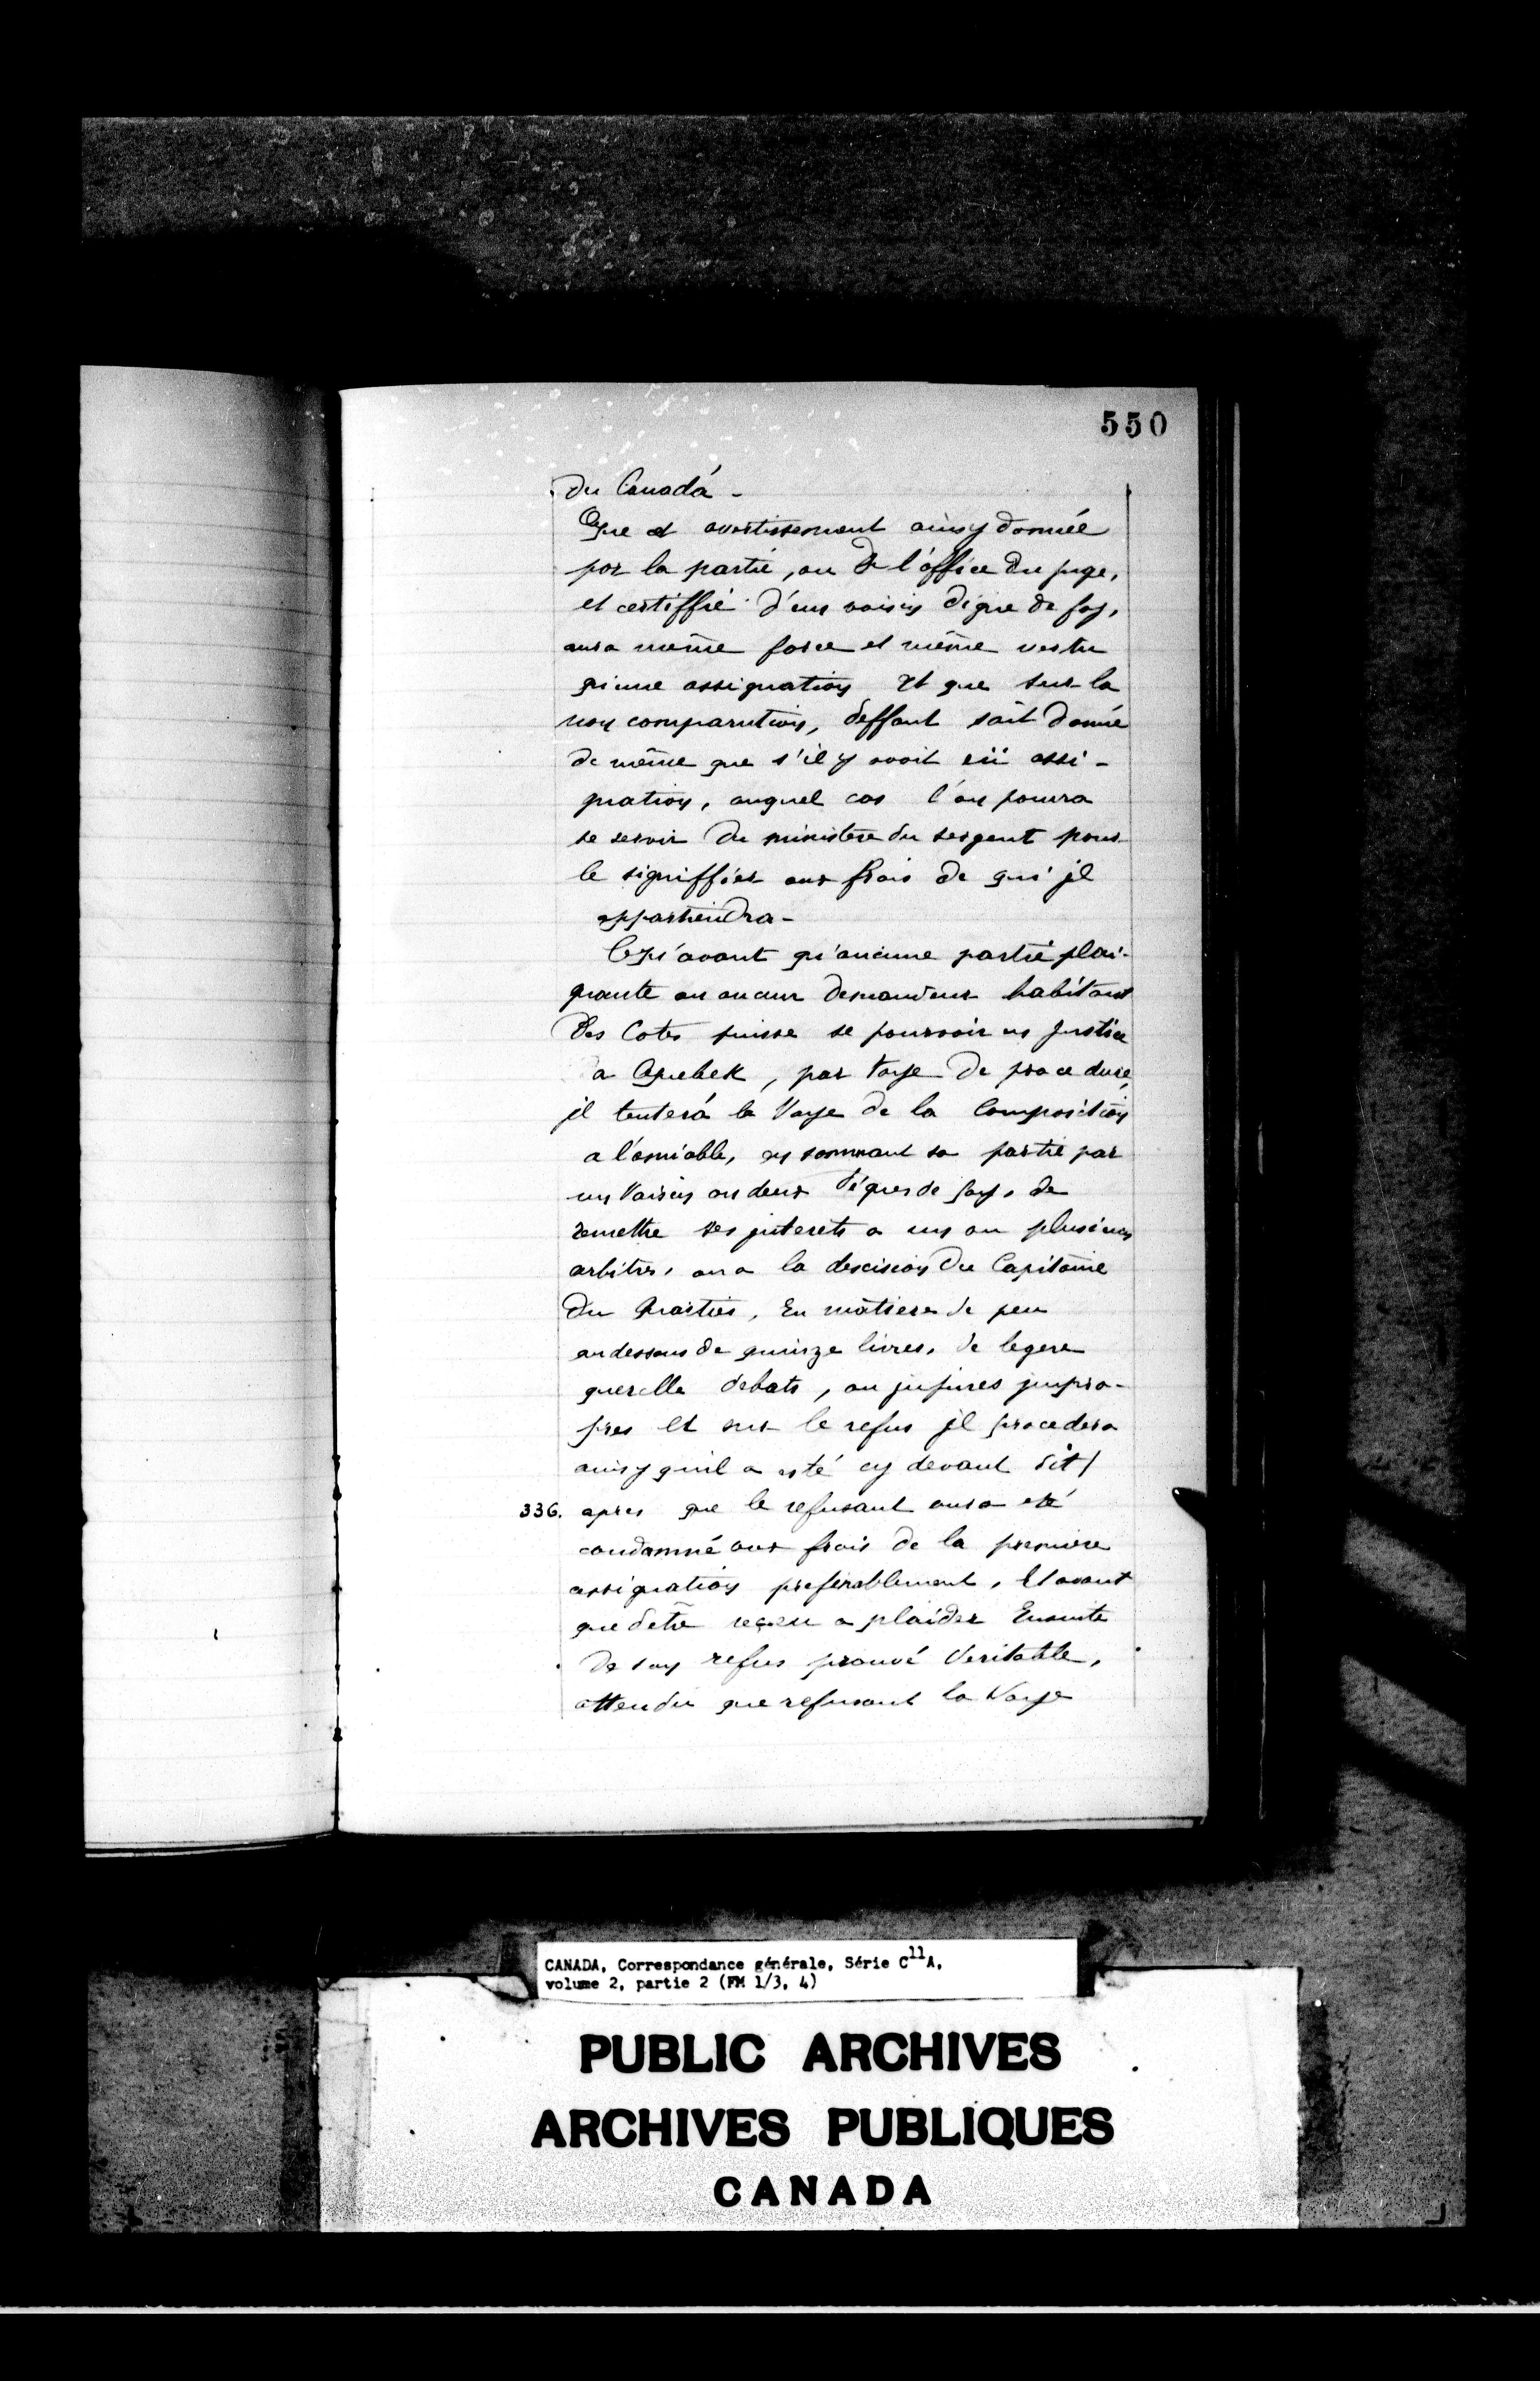 550
du Canadá -
Que et avertissement ainsy donnée
par la partie, ou de l'office du juge,
et certiffié d'un voisin digne de foy,
aura même force et même vertu
qu'une assignation Et que sur la
non comparution, deffaut soit donné
de même que s'il y avoit eü assi-
gnation, auquel cas l'on pourra
se servir du ministere du sergent pour
le signiffier aux frais de qui jl
appartiendra -
Qu'avant qu'aucune partie plai-
gnante ou aucun demandeur habitant
des Cotes puisse se pourvoir en justice
a Quebek, par voye de procedure,
jl tenterá la Voye de la Composition
a l'amiable, en sommant sa partie par
un Voisin ou deux dignes de foy, de
remettre ses jnterets a un ou plusieurs
arbitres, ou a la descision du Capitaine
du quartier, En matiere de peu
au dessous de quinze livres, de legere
querelle debats, ou jnjures jmpro-
pres et sur le refus jl procedera
ainsy quil a esté cy devant dit/
336. apres que le refusant aura eté
condamné aux frais de la premiere
assignation preferablement, Et avant
que detre reçeu a plaider Ensuite
de son refus prouvé Veritable,
attendu que refusant la Voye
CANADA, Correspondance générale, Série C11A,
volume 2, partie 2 (FM 1/3, 4)
PUBLIC ARCHIVES
ARCHIVES PUBLIQUES
CANADA